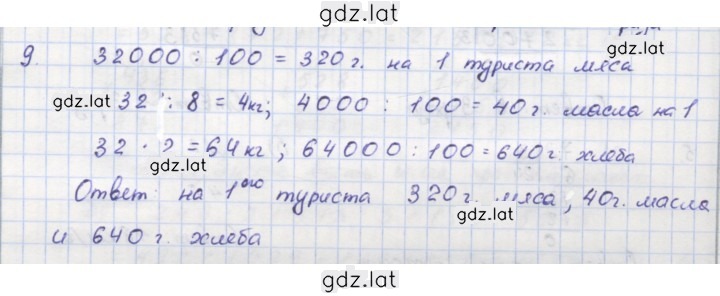 gdz.lat
9 32000 : 100 = 320 г. на 1 туриста мяса
gdz.lat 32 : 8 = 4кг; 4000 : 100 = 40 г. масла на 1
32 · 2 = 64 кг; 64000 : 100 = 640 г. хлеба
gdz.lat gdz.lat
Ответ: на 1ого туриста 320 г. мяса, 40 г. масла
gdz.lat
и 640 г. хлеба
gdz.lat